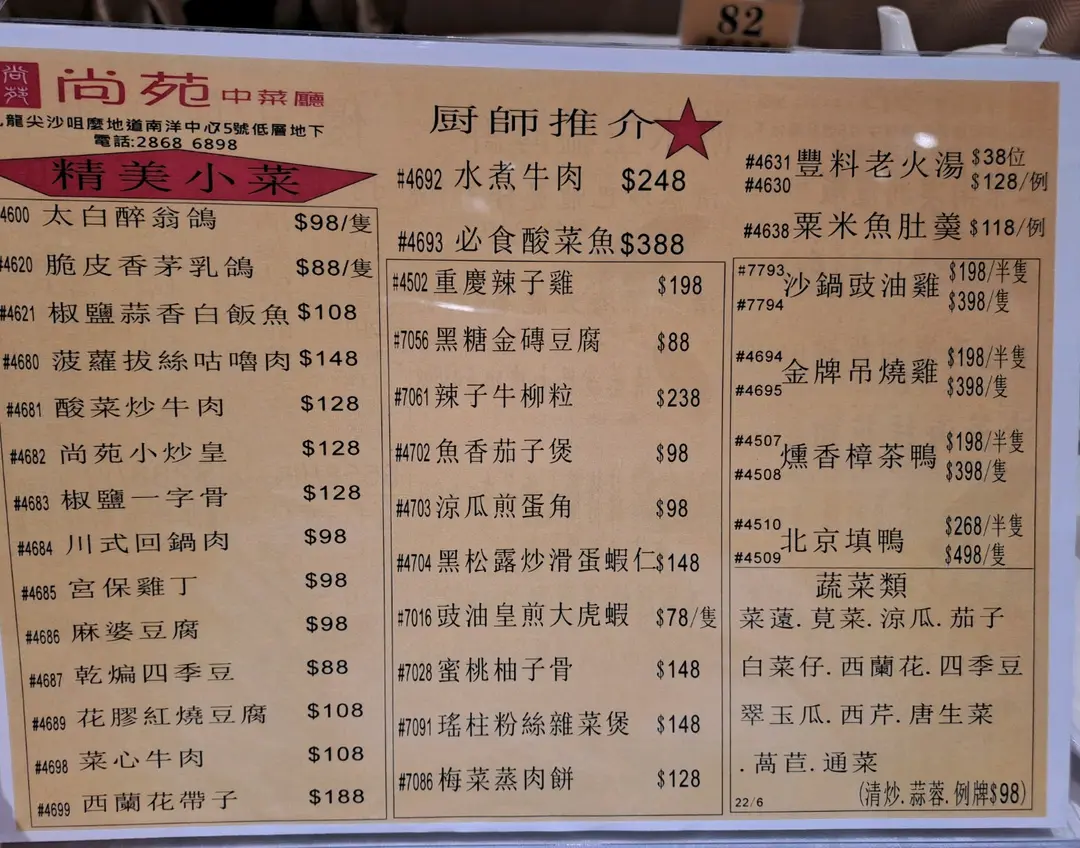 82
尚苑
尚苑中菜廳
龍尖沙咀麼地道南洋中心5號低層地下
電話:2868 6898
精美小菜
4600 太白醉翁鴿 $98/隻
#4620 脆皮香茅乳鴿 $88/隻
#4621 椒鹽蒜香白飯魚 $108
#4680 菠蘿拔絲咕嚕肉 $148
#4681 酸菜炒牛肉 $128
#4682 尚苑小炒皇 $128
#4683 椒鹽一字骨 $128
#4684 川式回鍋肉 $98
#4685 宮保雞丁 $98
#4686 麻婆豆腐 $98
#4687 乾煸四季豆 $88
#4689 花膠紅燒豆腐 $108
#4698 菜心牛肉 $108
#4699 西蘭花帶子 $188
厨師推介
#4692 水煮牛肉 $248
#4693 必食酸菜魚 $388
#4502 重慶辣子雞 $198
#7056 黑糖金磚豆腐 $88
#7061 辣子牛柳粒 $238
#4702 魚香茄子煲 $98
#4703 涼瓜煎蛋角 $98
#4704 黑松露炒滑蛋蝦仁 $148
#7016 豉油皇煎大虎蝦 $78/隻
#7028 蜜桃柚子骨 $148
#7091 瑤柱粉絲雜菜煲 $148
#7086 梅菜蒸肉餅 $128
#4631 豐料老火湯 $38位
#4630 $128/例
#4638 粟米魚肚羹 $118/例
#7793 沙鍋豉油雞 $198/半隻
#7794 $398/隻
#4694 金牌吊燒雞 $198/半隻
#4695 $398/隻
#4507 燻香樟茶鴨 $198/半隻
#4508 $398/隻
#4510 北京填鴨 $268/半隻
#4509 $498/隻
蔬菜類
菜薳.莧菜.涼瓜.茄子
白菜仔.西蘭花.四季豆
翠玉瓜.西芹.唐生菜
.萵苣.通菜
(清炒.蒜蓉.例牌$98)
22/6